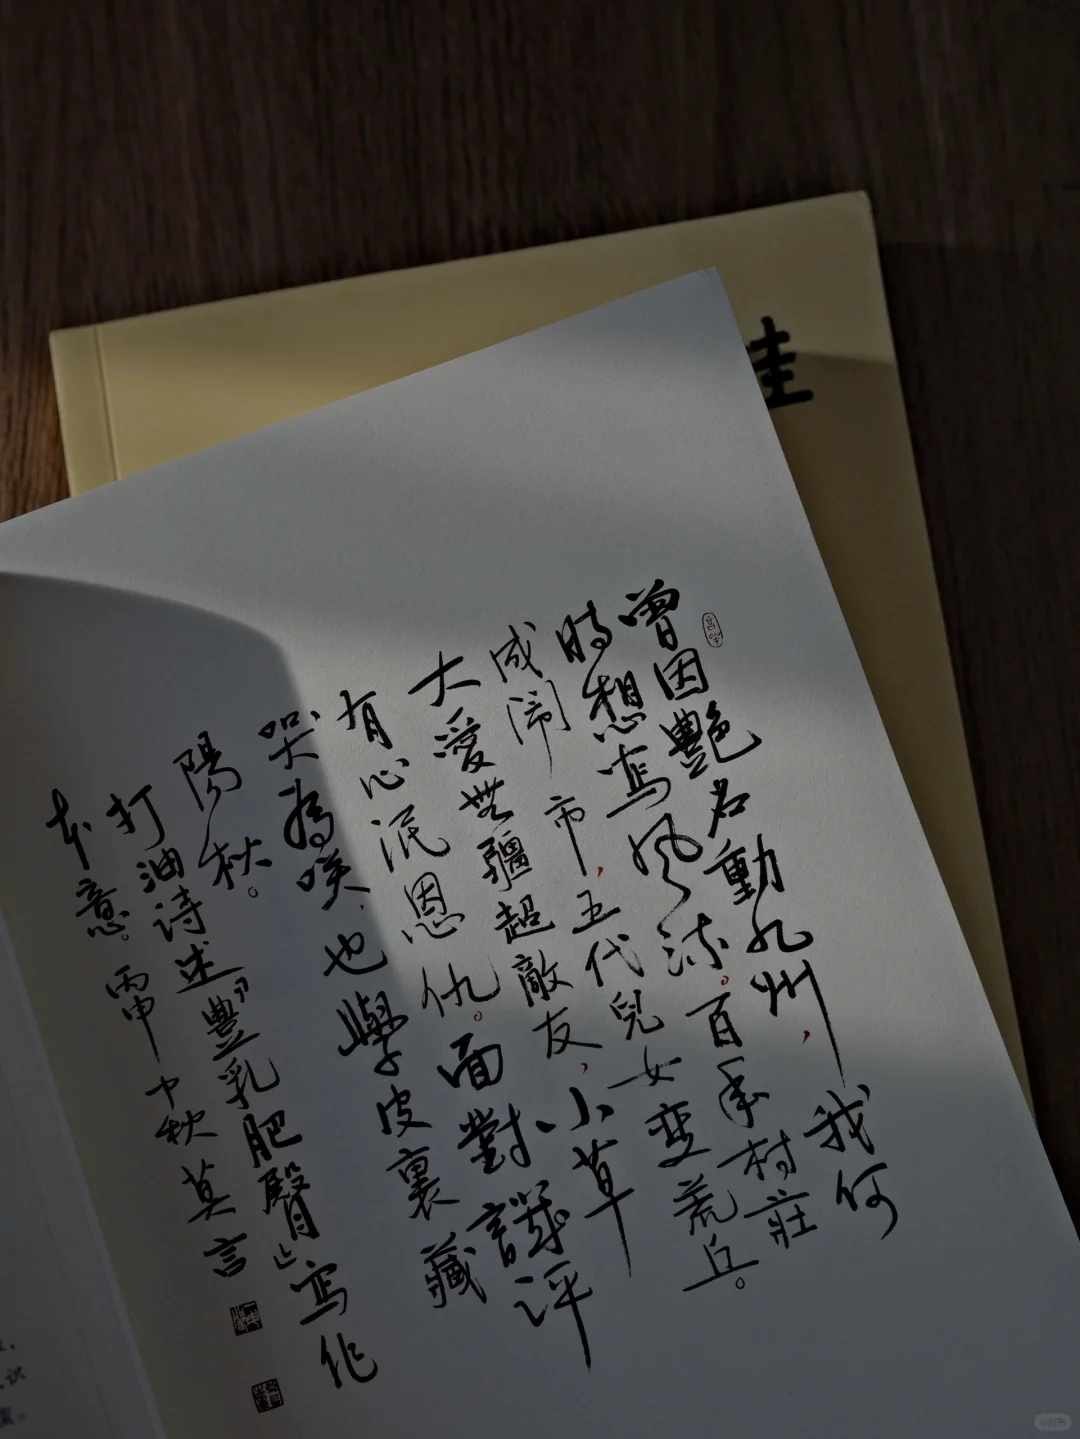 曾因艷名動九州，我何
時想寫風流。百年村莊
成鬧市，五代兒女變荒丘。
大愛無疆超敵友，小草
有心泯恩仇。面對譏評
哭為咲，也學皮裏藏
陽秋。
打油诗述『豐乳肥臀』寫作
本意。丙申中秋莫言
识
小红书